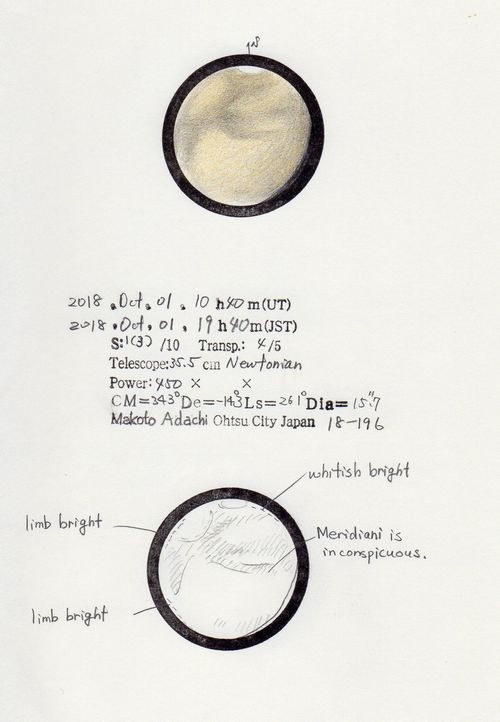 2018, Oct, 01, 10 h 40 m (UT)
2018, Oct, 01, 19 h 40 m (JST)
S: 1(3) /10 Transp.: 4/5
Telescope: 35.5 cm Newtonian
Power: 450 × ×
CM=343° De=-14.3° Ls=261° Dia= 15".7
Makoto Adachi Ohtsu City Japan 18-196
whitish bright
limb bright
Meridiani is
inconspicuous.
limb bright